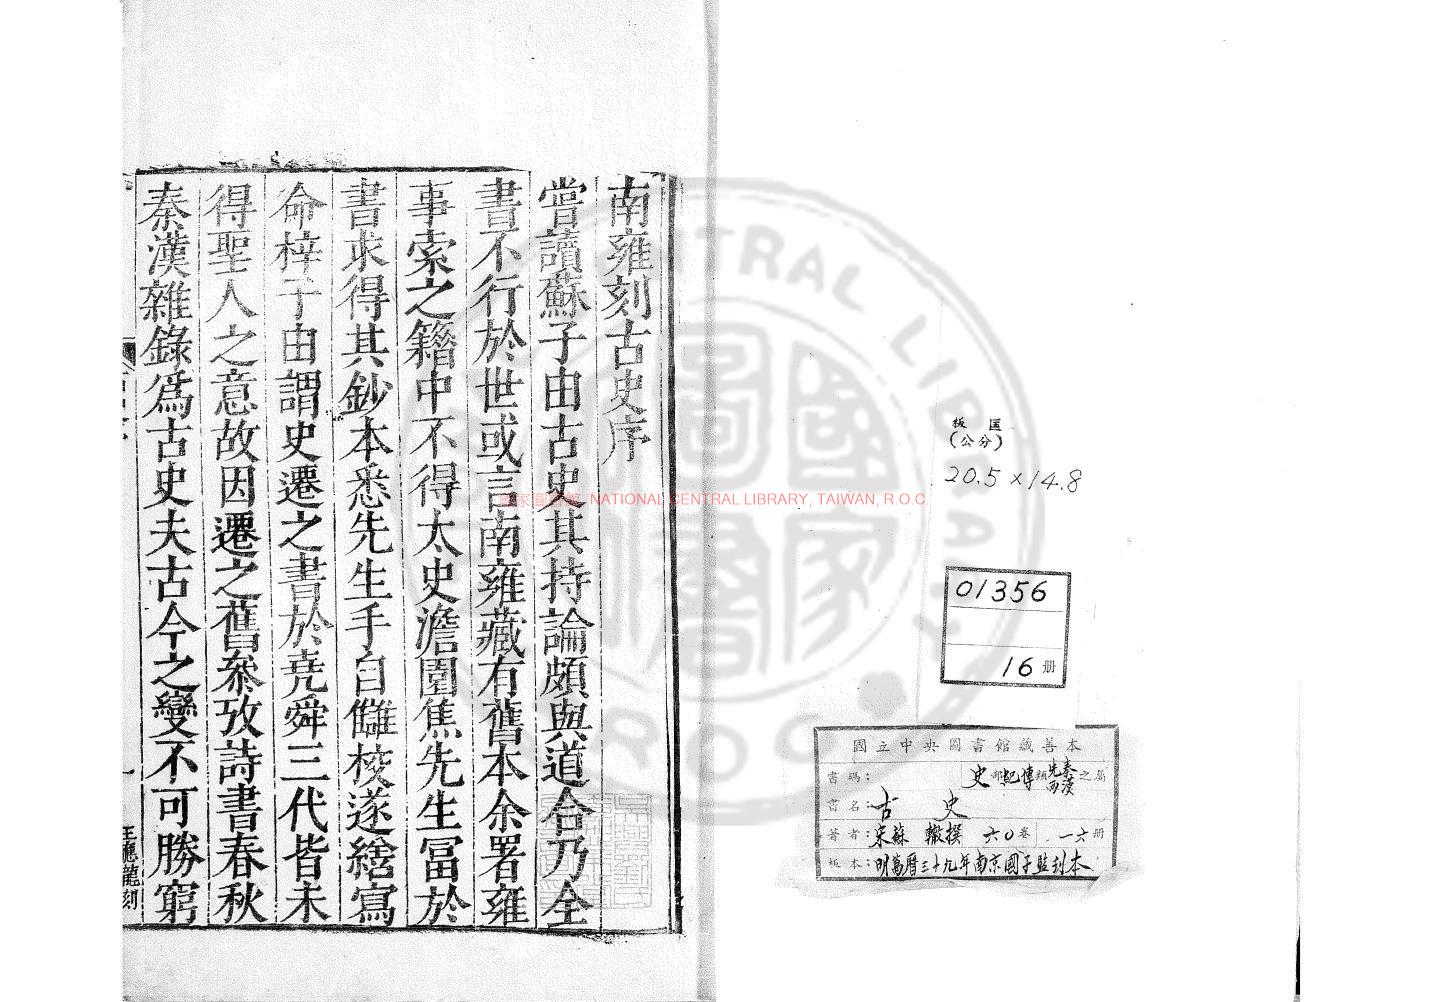 南雍刻古史序
嘗讀蘇子由古史其持論頗與道合乃全
書不行於世或言南雍藏有舊本余署雍
事索之籍中不得太史澹園焦先生冨於
書求得其鈔本悉先生手自讎校遂繕寫
命梓子由謂史遷之書於堯舜三代皆未
得聖人之意故因遷之舊叅攷詩書春秋
秦漢雜錄爲古史夫古今之變不可勝窮
一
王應龍刻
國家圖書館, NATIONAL CENTRAL LIBRARY, TAIWAN, R.O.C.
CENTRAL LIBRARY
R.O.C.
板匡
(公分)
20.5×14.8
01356
16 册
國立中央圖書館藏善本
書碼: 史部紀傳類先秦兩漢之屬
書名: 古 史
著者: 宋蘇 轍撰 六〇卷 一六册
板本: 明萬曆三十九年南京國子監刊本